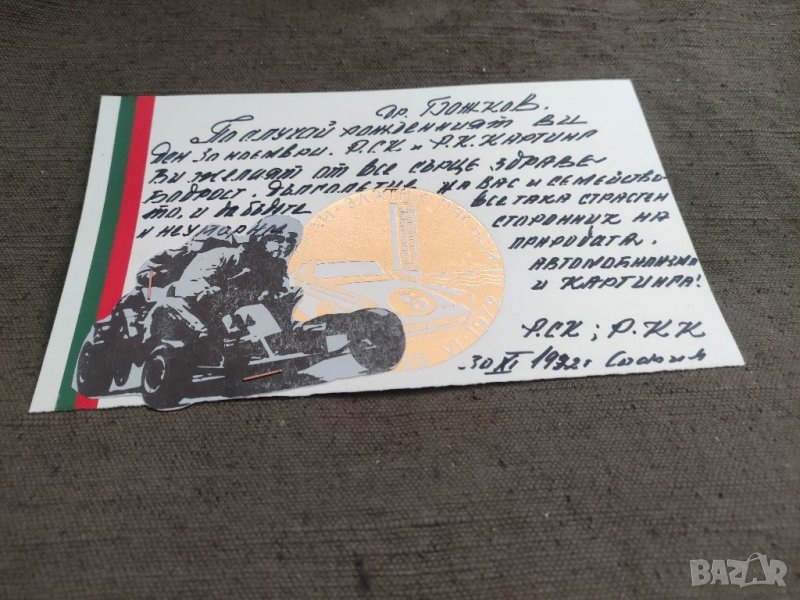 др. Божков.
По случай рожденният ви
ден 30 ноември. Р.С.К и Р.К. Картинг
Ви желаят от все сърце здраве
бодрост, дълголетие на вас и семейство
то, и бъдете все така страстен
и неуморим сторонник на
природата,
автомобилизма
и картинга!
Р.С.К; Р.К К
30 XI 1982г
VI-1978
BAZAR